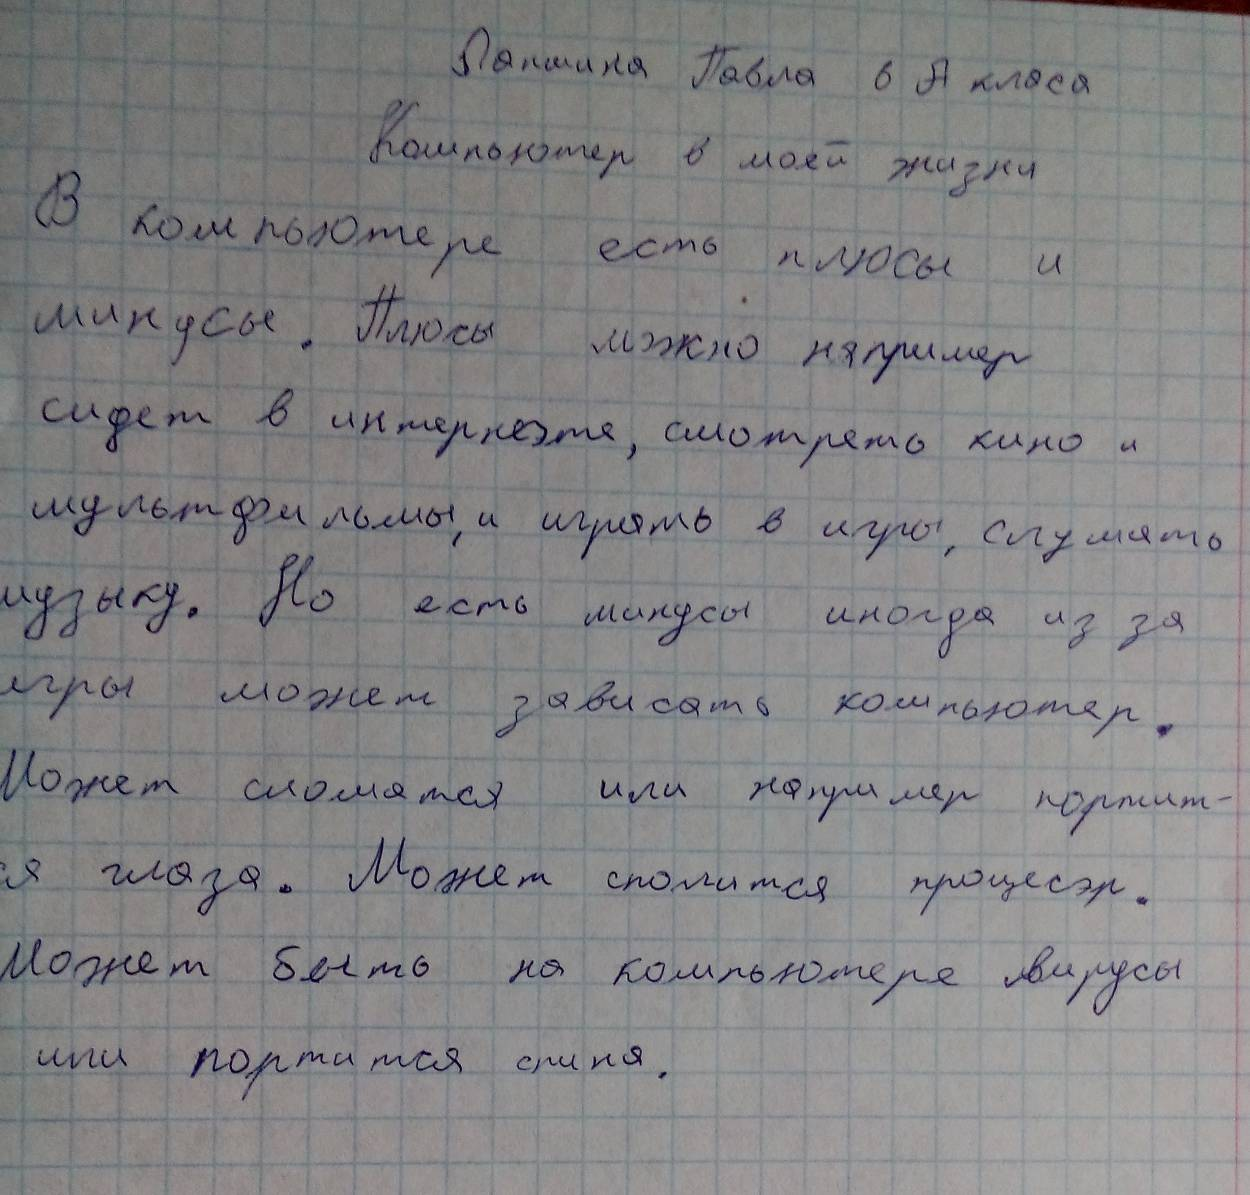 Лапшина Павла 6 А класа
Компьютер в моей жизни
В компьютере есть плюсы и
минусы. Плюсы можно например
сидет в интернэте, смотреть кино и
мультфильмы, и играть в игры, слушать
музыку. Но есть минусы иногда из за
игры может зависать компьютер.
Может сломатся или например портит-
ся глаза. Может спалится процесэр.
Может быть на компьютере вирусы
или портится спина.